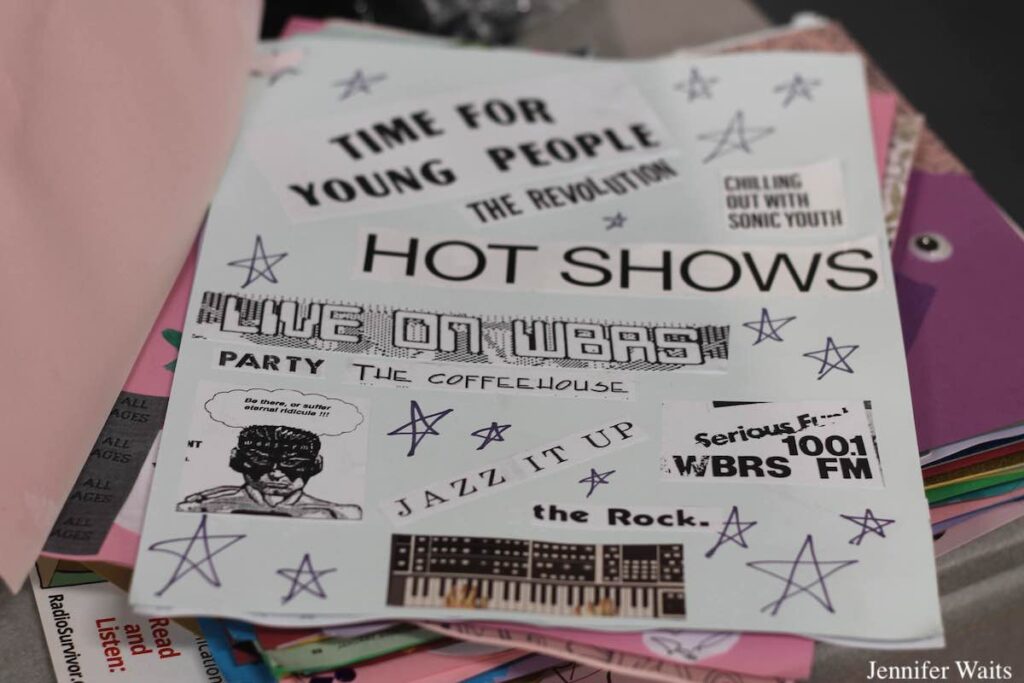 TIME FOR
YOUNG PEOPLE
THE REVOLUTION
CHILLING
OUT WITH
SONIC YOUTH
HOT SHOWS
LIVE ON WBRS
PARTY
THE COFFEEHOUSE
Be there, or suffer
eternal ridicule !!!
NT
Serious Fun!
100.1
WBRS FM
JAZZ IT UP
the Rock.
ALL
AGES
ALL
AGES
ALL
AGES
ALL
AGES
RadioSurvivor.
Read
and
Listen:
Jennifer Waits